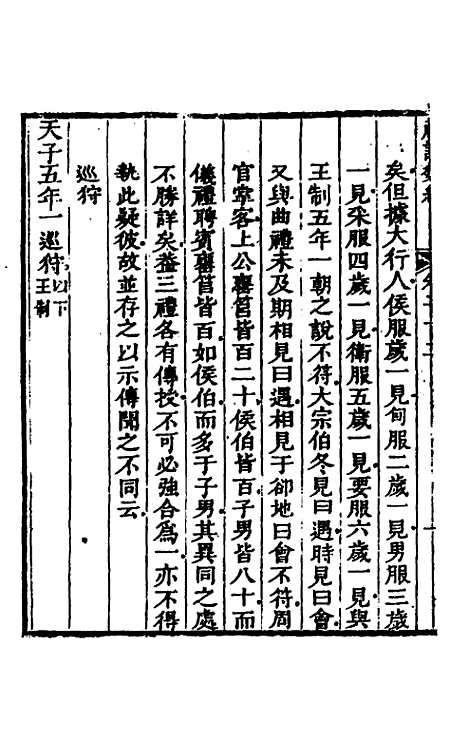 矣但據大行人侯服歲一見甸服二歲一見男服三歲
一見采服四歲一見衛服五歲一見要服六歲一見與
王制五年一朝之說不符大宗伯冬見曰遇時見曰會
又與曲禮未及期相見曰遇相見于卻地曰會不符周
官掌客上公饔筥皆百二十侯伯皆百子男皆八十而
儀禮聘賓饔筥皆百如侯伯而多于子男其異同之處
不勝詳矣葢三禮各有傳授不可必強合為一亦不得
執此疑彼故並存之以示傳聞之不同云
巡狩
天子五年一巡狩以下王制